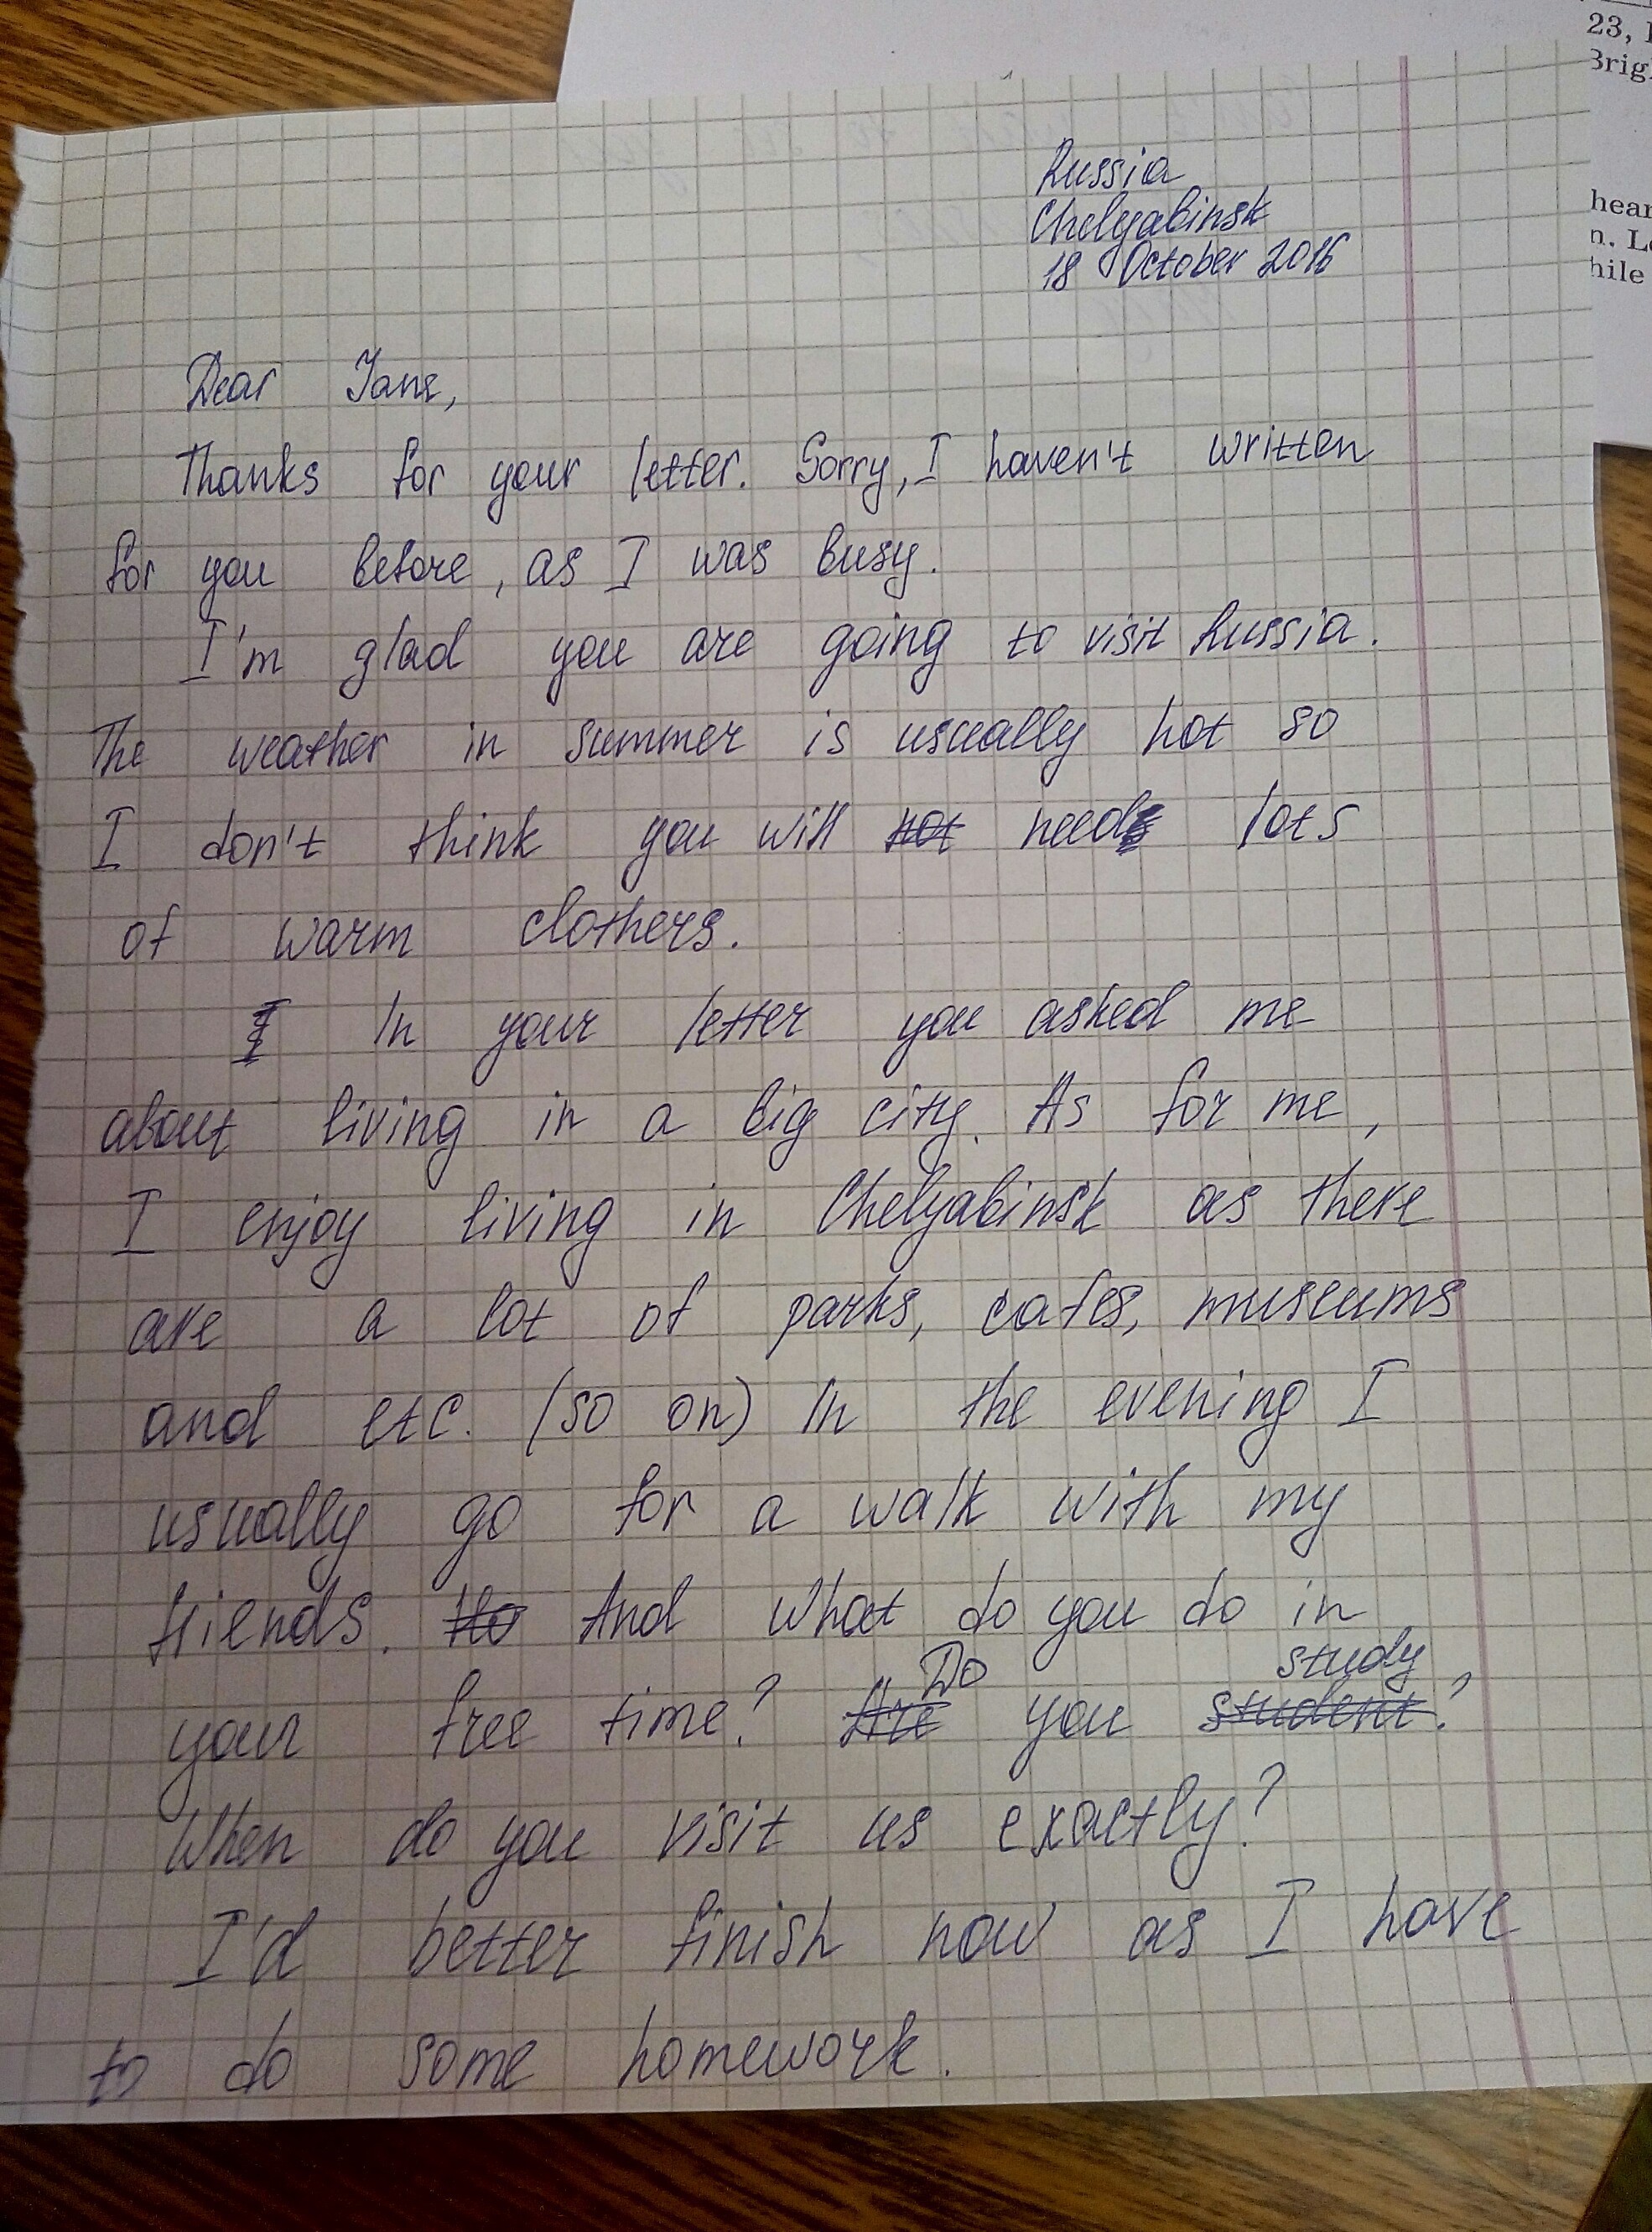 23,
Brig
hear
n. L
hile
Russia
Chelyabinsk
18 October 2016
Dear Jane,
Thanks for your letter. Sorry, I haven't written
for you before, as I was busy.
I'm glad you are going to visit Russia.
The weather in summer is usually hot so
I don't think you will not need lots
of warm clothers.
In your letter you asked me
about living in a big city. As for me,
I enjoy living in Chelyabinsk as there
are a lot of parks, cafes, museums
and etc. (so on) In the evening I
usually go for a walk with my
friends. And what do you do in
Do study
your free time? Are you student?
When do you visit us exactly?
I'd better finish now as I have
to do some homework.